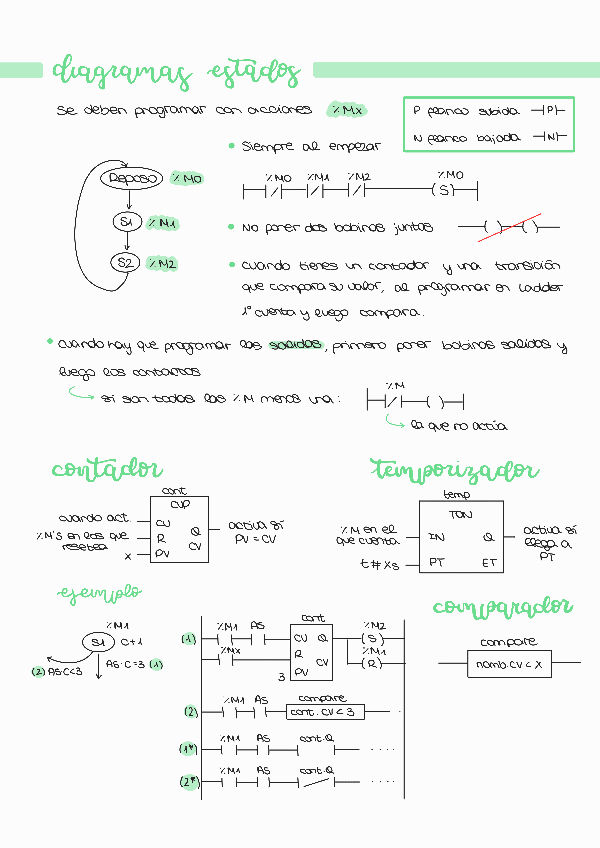 diagramas estados
Se deben programar con acciones %Mx
P flanco subida ⊣P⊢
N flanco bajada ⊣N⊢
Reposo %M0
S1 %M1
S2 %M2
• Siempre al empezar
%M0 %M1 %M2 %M0
(S)
• No poner dos bobinas juntas
• Cuando tienes un contador y una transición
que compara su valor, al programar en Ladder
1º cuenta y luego compara.
• Cuando hay que programar las salidas, primero poner bobinas salidas y
luego los contactos
si son todas las %M menos una:
%M
la que no actúa
contador
cont
CUP
cuando act. CU
%M's en los que resetea R
x PV
Q
CV
activa si
PV = CV
temporizador
temp
TON
%M en el
que cuenta IN
t#Xs PT
Q
ET
activa si
llega a
PT
ejemplo
%M1
S1 C+1
(2) AS·C<3
AS·C=3 (1)
(1) %M1 AS
%Mx
cont
CU Q
R
CV
3 PV
%M2
(S)
%M1
(R)
(2) %M1 AS compare
cont.CV < 3
(1*) %M1 AS cont.Q ....
(2*) %M1 AS cont.Q ....
comparador
compare
nomb.CV < X